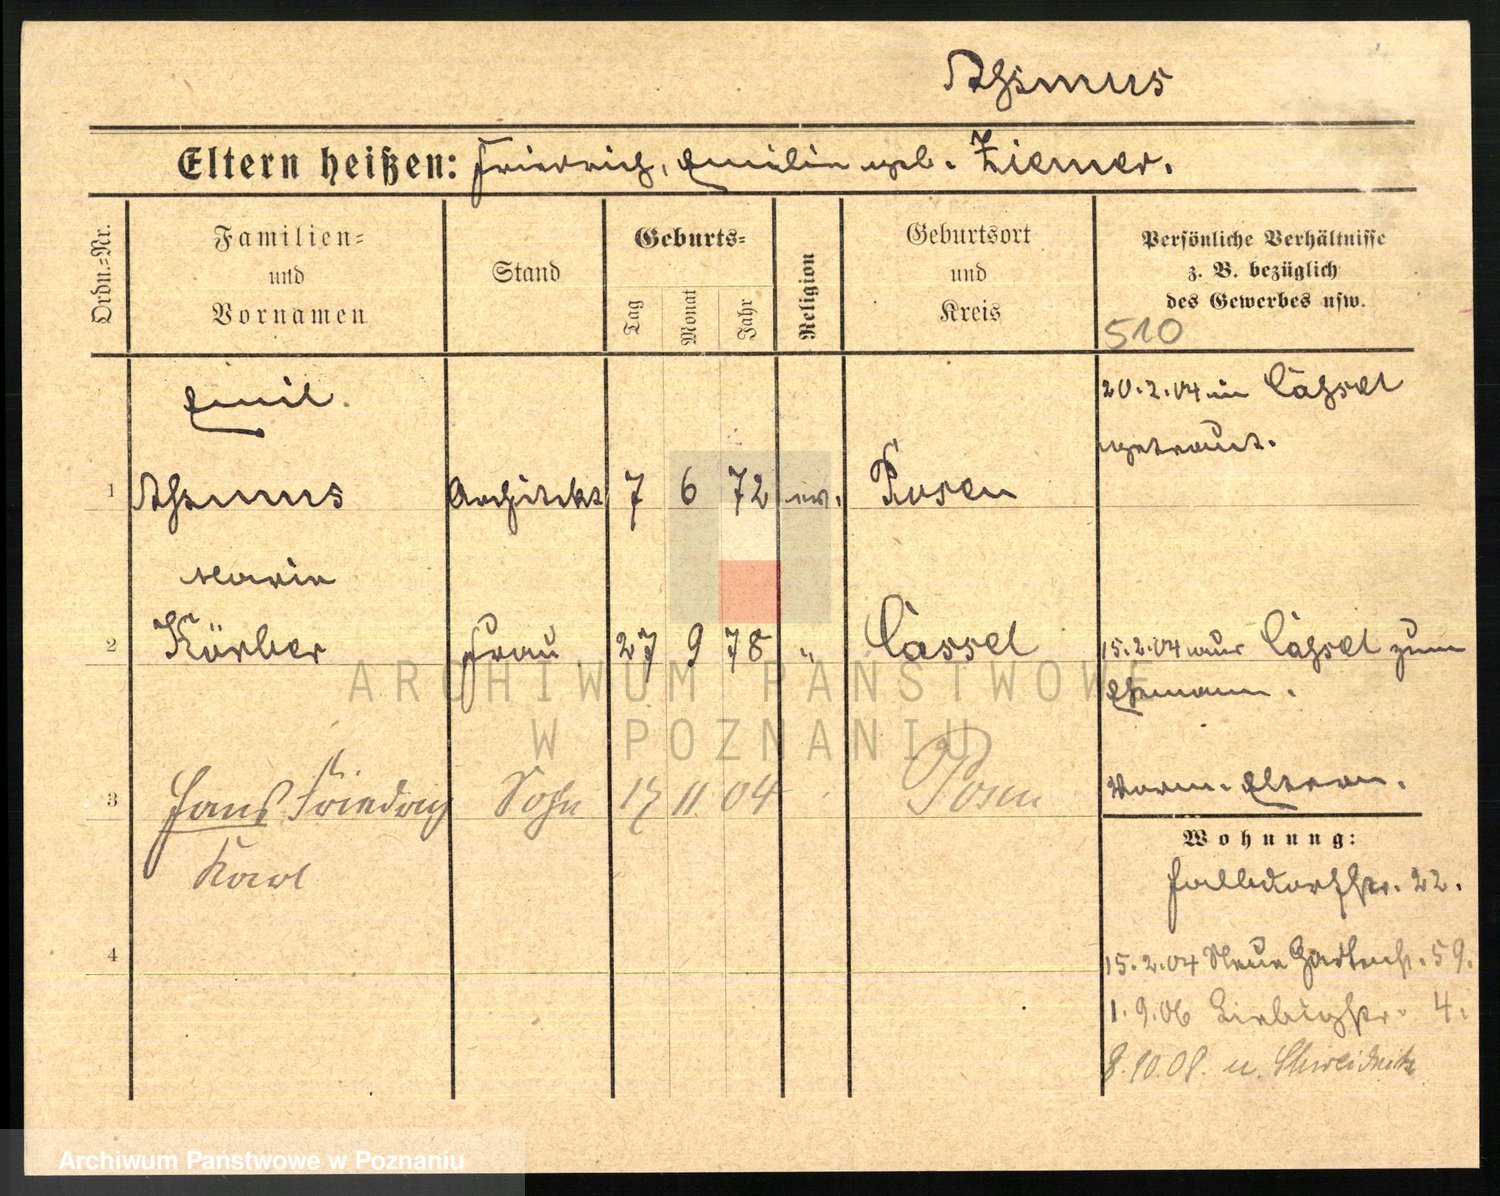 Aßmus
Eltern heißen: Friedrich, Emilie geb. Ziemer.
Ordn.-Nr.
Familien-
und
Vornamen
Stand
Geburts-
Tag
Monat
Jahr
Religion
Geburtsort
und
Kreis
Persönliche Verhältnisse
z. B. bezüglich
des Gewerbes usw.
510
Emil.
1 Aßmus Architekt 7 6 72 ev. Posen
20.2.04 in Cassel
getraut.
Marie
2 Körber Frau 27 9 78 " Cassel
15.2.04 aus Cassel zum
Ehemann.
3 Hans Friedrich Sohn 17 11. 04 Posen
Karl
Eltern.
Wohnung:
22.
4
15.2.04 Neue Gartenstr. 59.
1.9.06 Liebigstr. 4.
8.10.08. n. Schweidnitz
ARCHIWUM PAŃSTWOWE
W POZNANIU
Archiwum Państwowe w Poznaniu